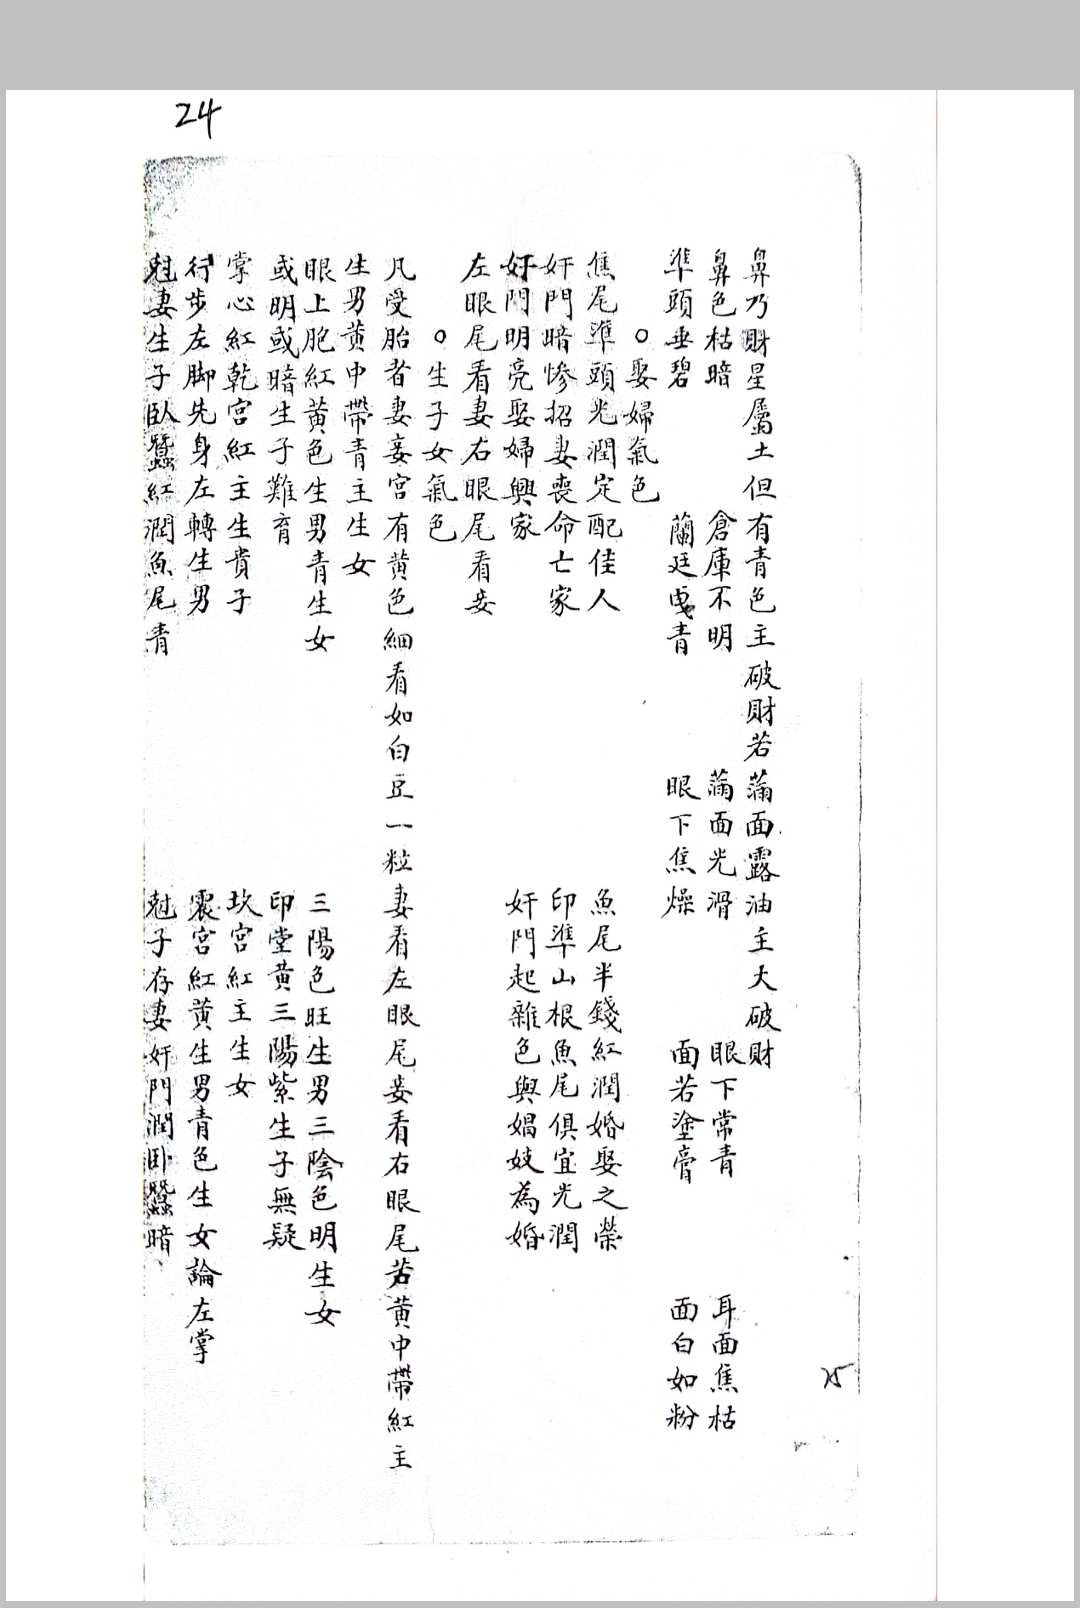 24
鼻乃財星屬土但有青色主破財若滿面露油主大破財
鼻色枯暗 倉庫不明 滿面光滑 眼下常青 耳面焦枯
準頭垂碧 蘭廷曳青 眼下焦燥 面若塗膏 面白如粉
○娶婦氣色
焦尾準頭光潤定配佳人 魚尾半錢紅潤婚娶之榮
奸門暗慘招妻喪命亡家 印準山根魚尾俱宜光潤
奸門明亮娶婦興家 奸門起雜色與娼妓為婚
左眼尾看妻右眼尾看妾
○生子女氣色
凡受胎者妻妾宮有黃色細看如白豆一粒妻看左眼尾妾看右眼尾若黃中帶紅主
生男黃中帶青主生女
眼上胞紅黃色生男青生女 三陽色旺生男三陰色明生女
或明或暗生子難育 印堂黃三陽紫生子無疑
掌心紅乾宮紅主生貴子 坎宮紅主生女
行步左脚先身左轉生男 震宮紅黃生男青色生女論左掌
尅妻生子臥蠶紅潤魚尾青 尅子存妻奸門潤卧蠶暗
25